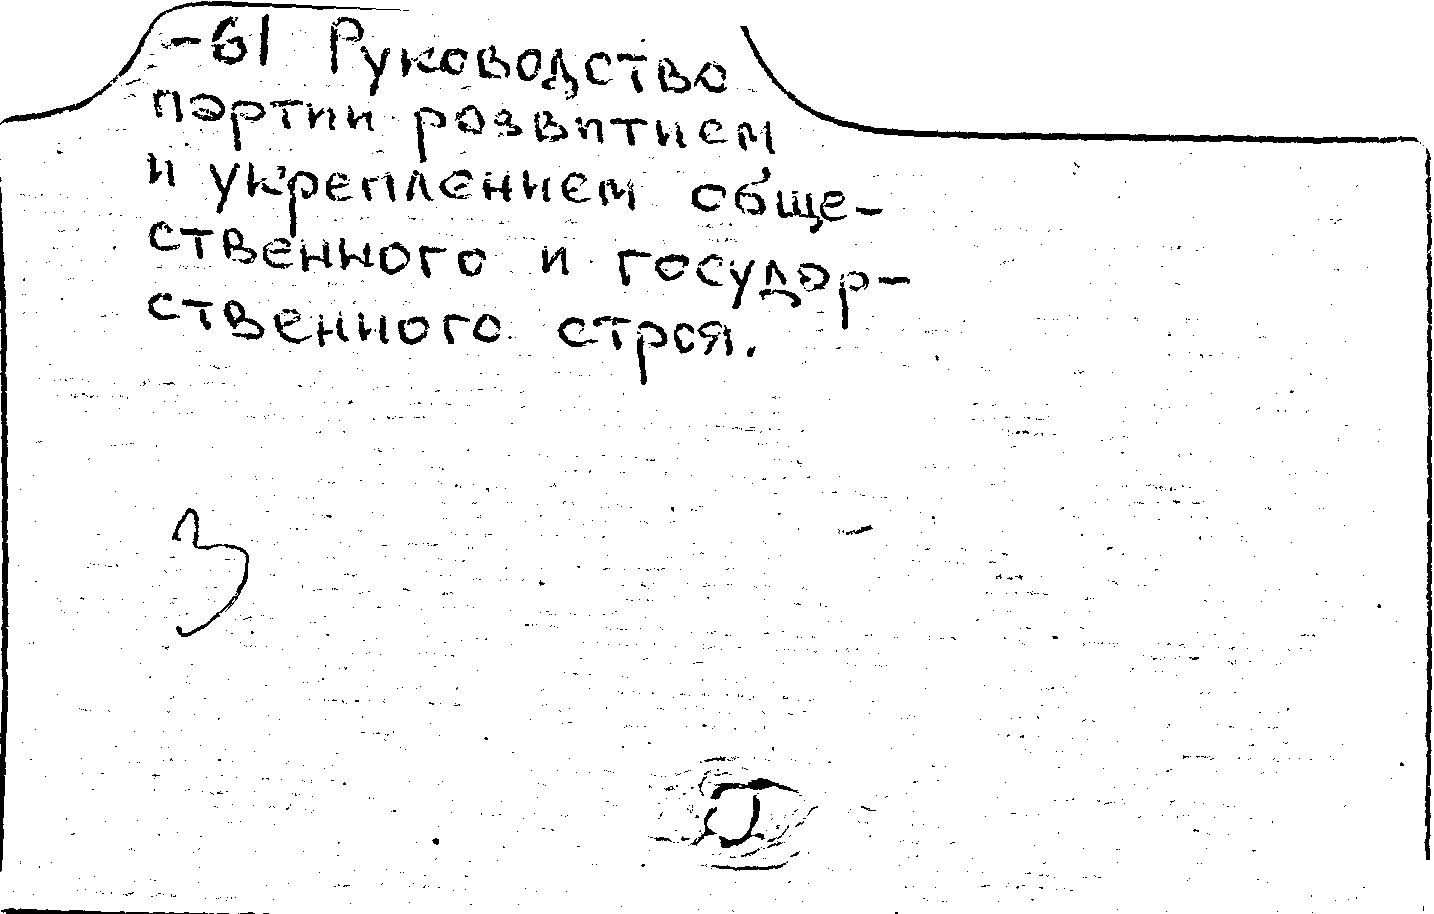 -61 Руководство
партии развитием
и укреплением обще-
ственного и государ-
ственного строя.
3